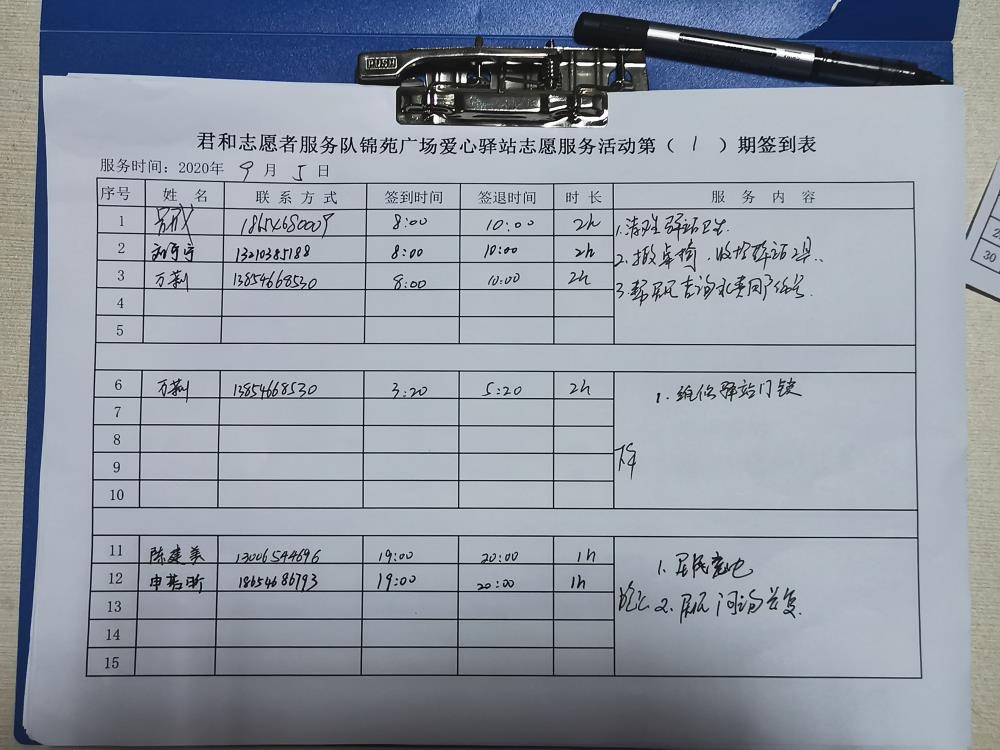 PUSH
君和志愿者服务队锦苑广场爱心驿站志愿服务活动第（ 1 ）期签到表
服务时间：2020年 9 月 5 日
序号 姓 名 联 系 方 式 签到时间 签退时间 时 长 服 务 内 容
1 18654680009 8:00 10:00 2h 1.清理驿站卫生.
2 13210385188 8:00 10:00 2h 2.摆桌椅、收拾驿站工具.
3 万莉 13854668530 8:00 10:00 2h 3.帮居民查询水费用户
4
5
6 万莉 13854668530 3:20 5:20 2h 1.维修驿站门锁
7
8
9 下午
10
11 陈建美 13006544696 19:00 20:00 1h 1.居民充电
12 申若昕 18654686793 19:00 20:00 1h 晚上 2.居民问询答复.
13
14
15
2
30